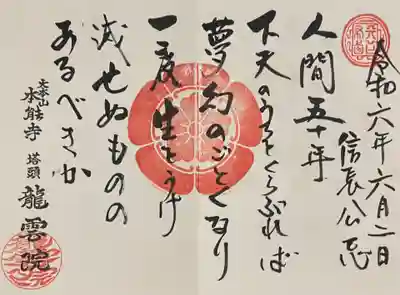 令和六年六月二日
信長公忌
人間五十年
下天のうちをくらぶれば
夢幻のごとくなり
一度生をうけ
滅せぬものの
あるべきか
大本山
本能寺 塔頭 龍雲院